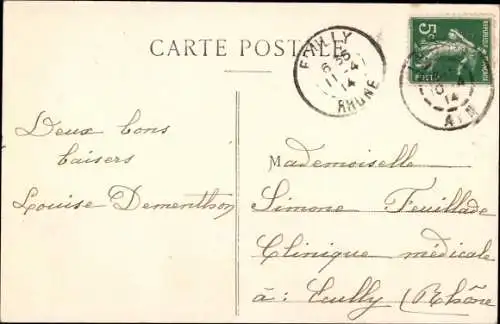 CARTE POSTALE
ECULLY
6 35
11 -4
14
RHÔNE
5c
AIN
14
Deux bons
baisers
Louise Dementhon
Mademoiselle
Simone Feuillade
Clinique médicale
à : Ecully (Rhône